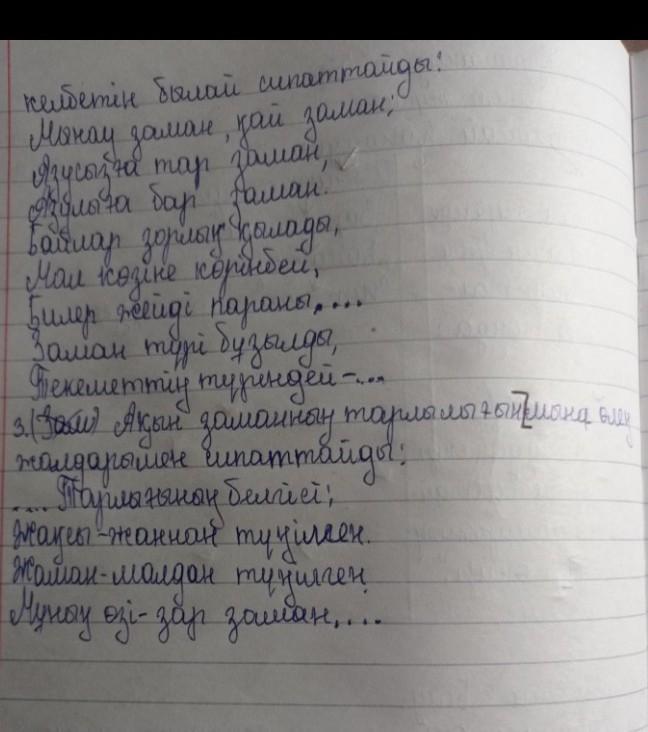 келбетін былай сипаттайды:
Мынау заман, қай заман;
Азусызға тар заман,
Азулыға бар заман.
Байлар зорлық қылады,
Мал көзіне көрінбей,
Билер жейді параны,...
Заман түрі бұзылды,
Текеметтің түріндей-...
3. Ақын заманның тарлылығын мына өлең
жолдарымен сипаттайды:
.... Тарлығының белгісі;
Жақсы-жаннан түңілген.
Жаман-малдан түңілген
Мұнау өзі-зар заман,...